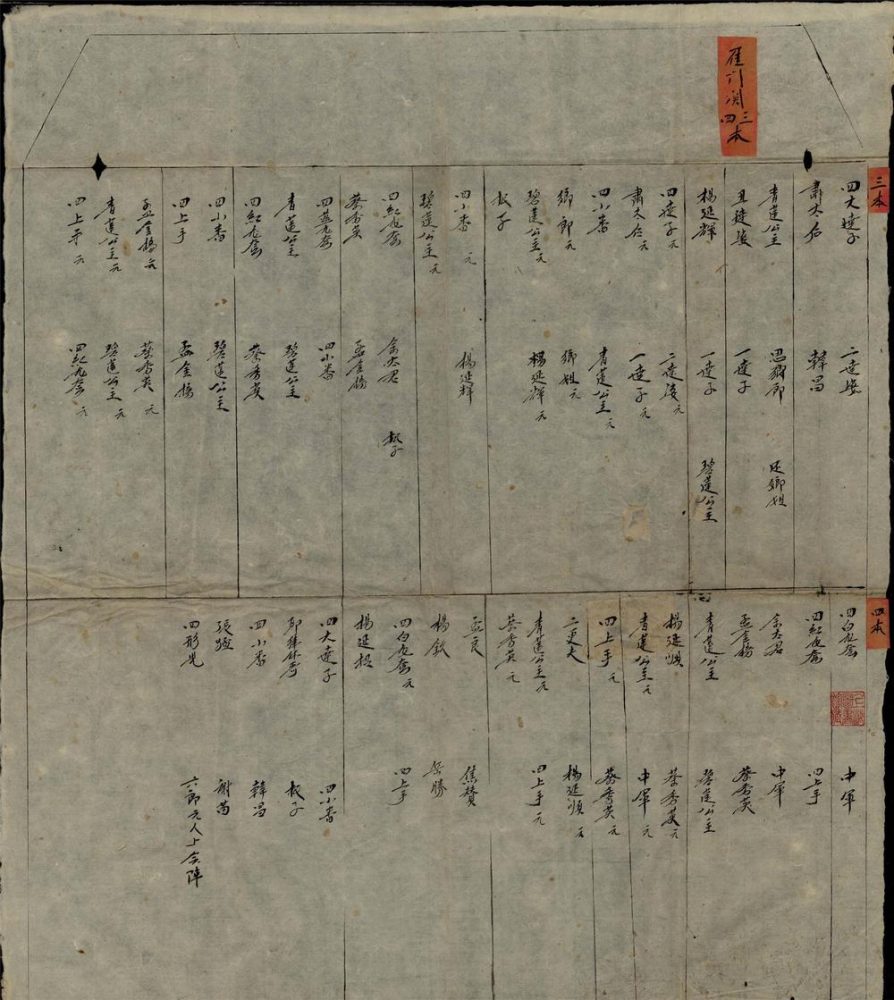 雁门関
三四本
三本
四大達子 二達婆
肅太后 韓昌
青蓮公主 思鄉郎 鄉姐
丑達婆 一達子
楊延輝 一達子 碧蓮公主
四達子元 二達婆元
肅太后元 一達子元
四小番 青蓮公主元
鄉郎元 鄉姐元
碧蓮公主元 楊延輝元
報子
四小番元 楊延輝
碧蓮公主元
四紅龍套 佘太君 報子
蔡秀英 孟金榜
四藍龍套 四小番
青蓮公主 碧蓮公主
四紅龍套 蔡秀英
四小番 碧蓮公主
四上手 孟金榜
孟金榜元 蔡秀英元
青蓮公主元 碧蓮公主元
四上手元 四紅龍套元
四本
四白龍套 中軍
四紅龍套 四上手
佘太君 中軍
孟金榜 蔡秀英
青蓮公主 碧蓮公主
楊延順 蔡秀英元
青蓮公主元 中軍元
四上手元 蔡秀英元
二更夫 楊延順元
青蓮公主元 四上手元
蔡秀英元
孟良 焦贊
楊欽 岳勝
四白龍套元 四上手
楊延昭
四大達子 四小番
報子
四小番 韓昌
張 謝
四形兒 六郎元人上会陣